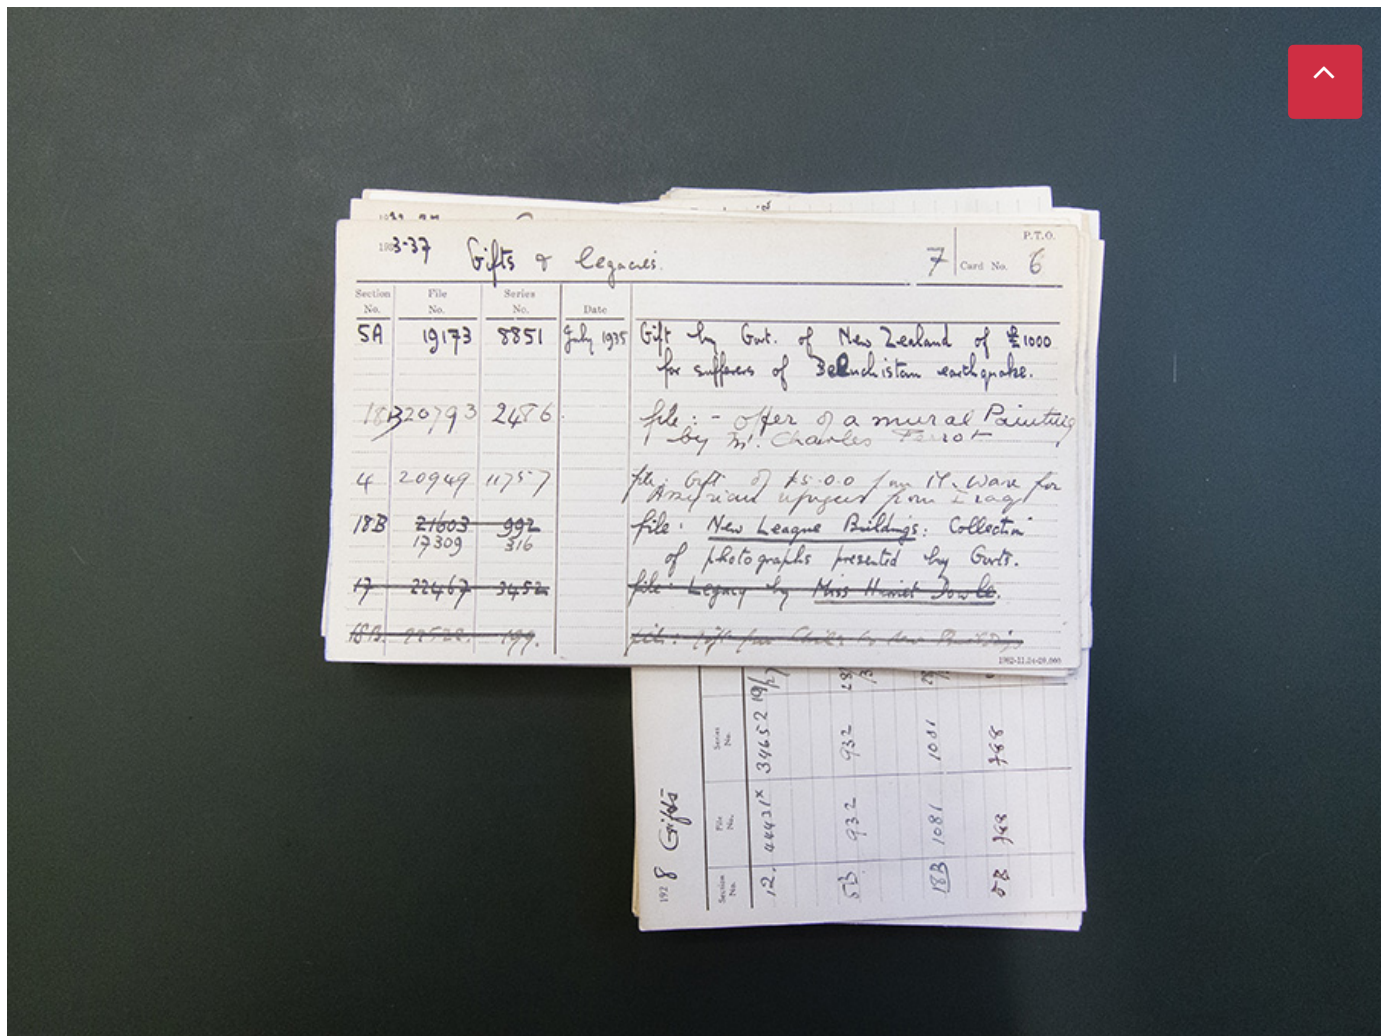 1933-37 Gifts & Legacies. 7 Card No. 6 P.T.O.
Section No. File No. Series No. Date
5A 19173 8851 July 1935 Gift by Govt. of New Zealand of £1000
for sufferers of Beluchistan earthquake.
18B 20793 2486 file: - offer of a mural Painting
by Mr. Charles Perrot
4 20949 11757 file: Gift of £5.0.0 from M. Ware for
Assyrian refugees from Iraq
18B 21603 992 file: New League Buildings: Collection
17309 316
of photographs presented by Govts.
17 22467 3452 file: Legacy by Miss Harriet
18B. 199. file: Gift from to New Buildings
1928 Gifts
Section No. File No. Series No.
12. 44431x 34652 19/27
5B 932 932
18B 1081 1081
5B 788 788